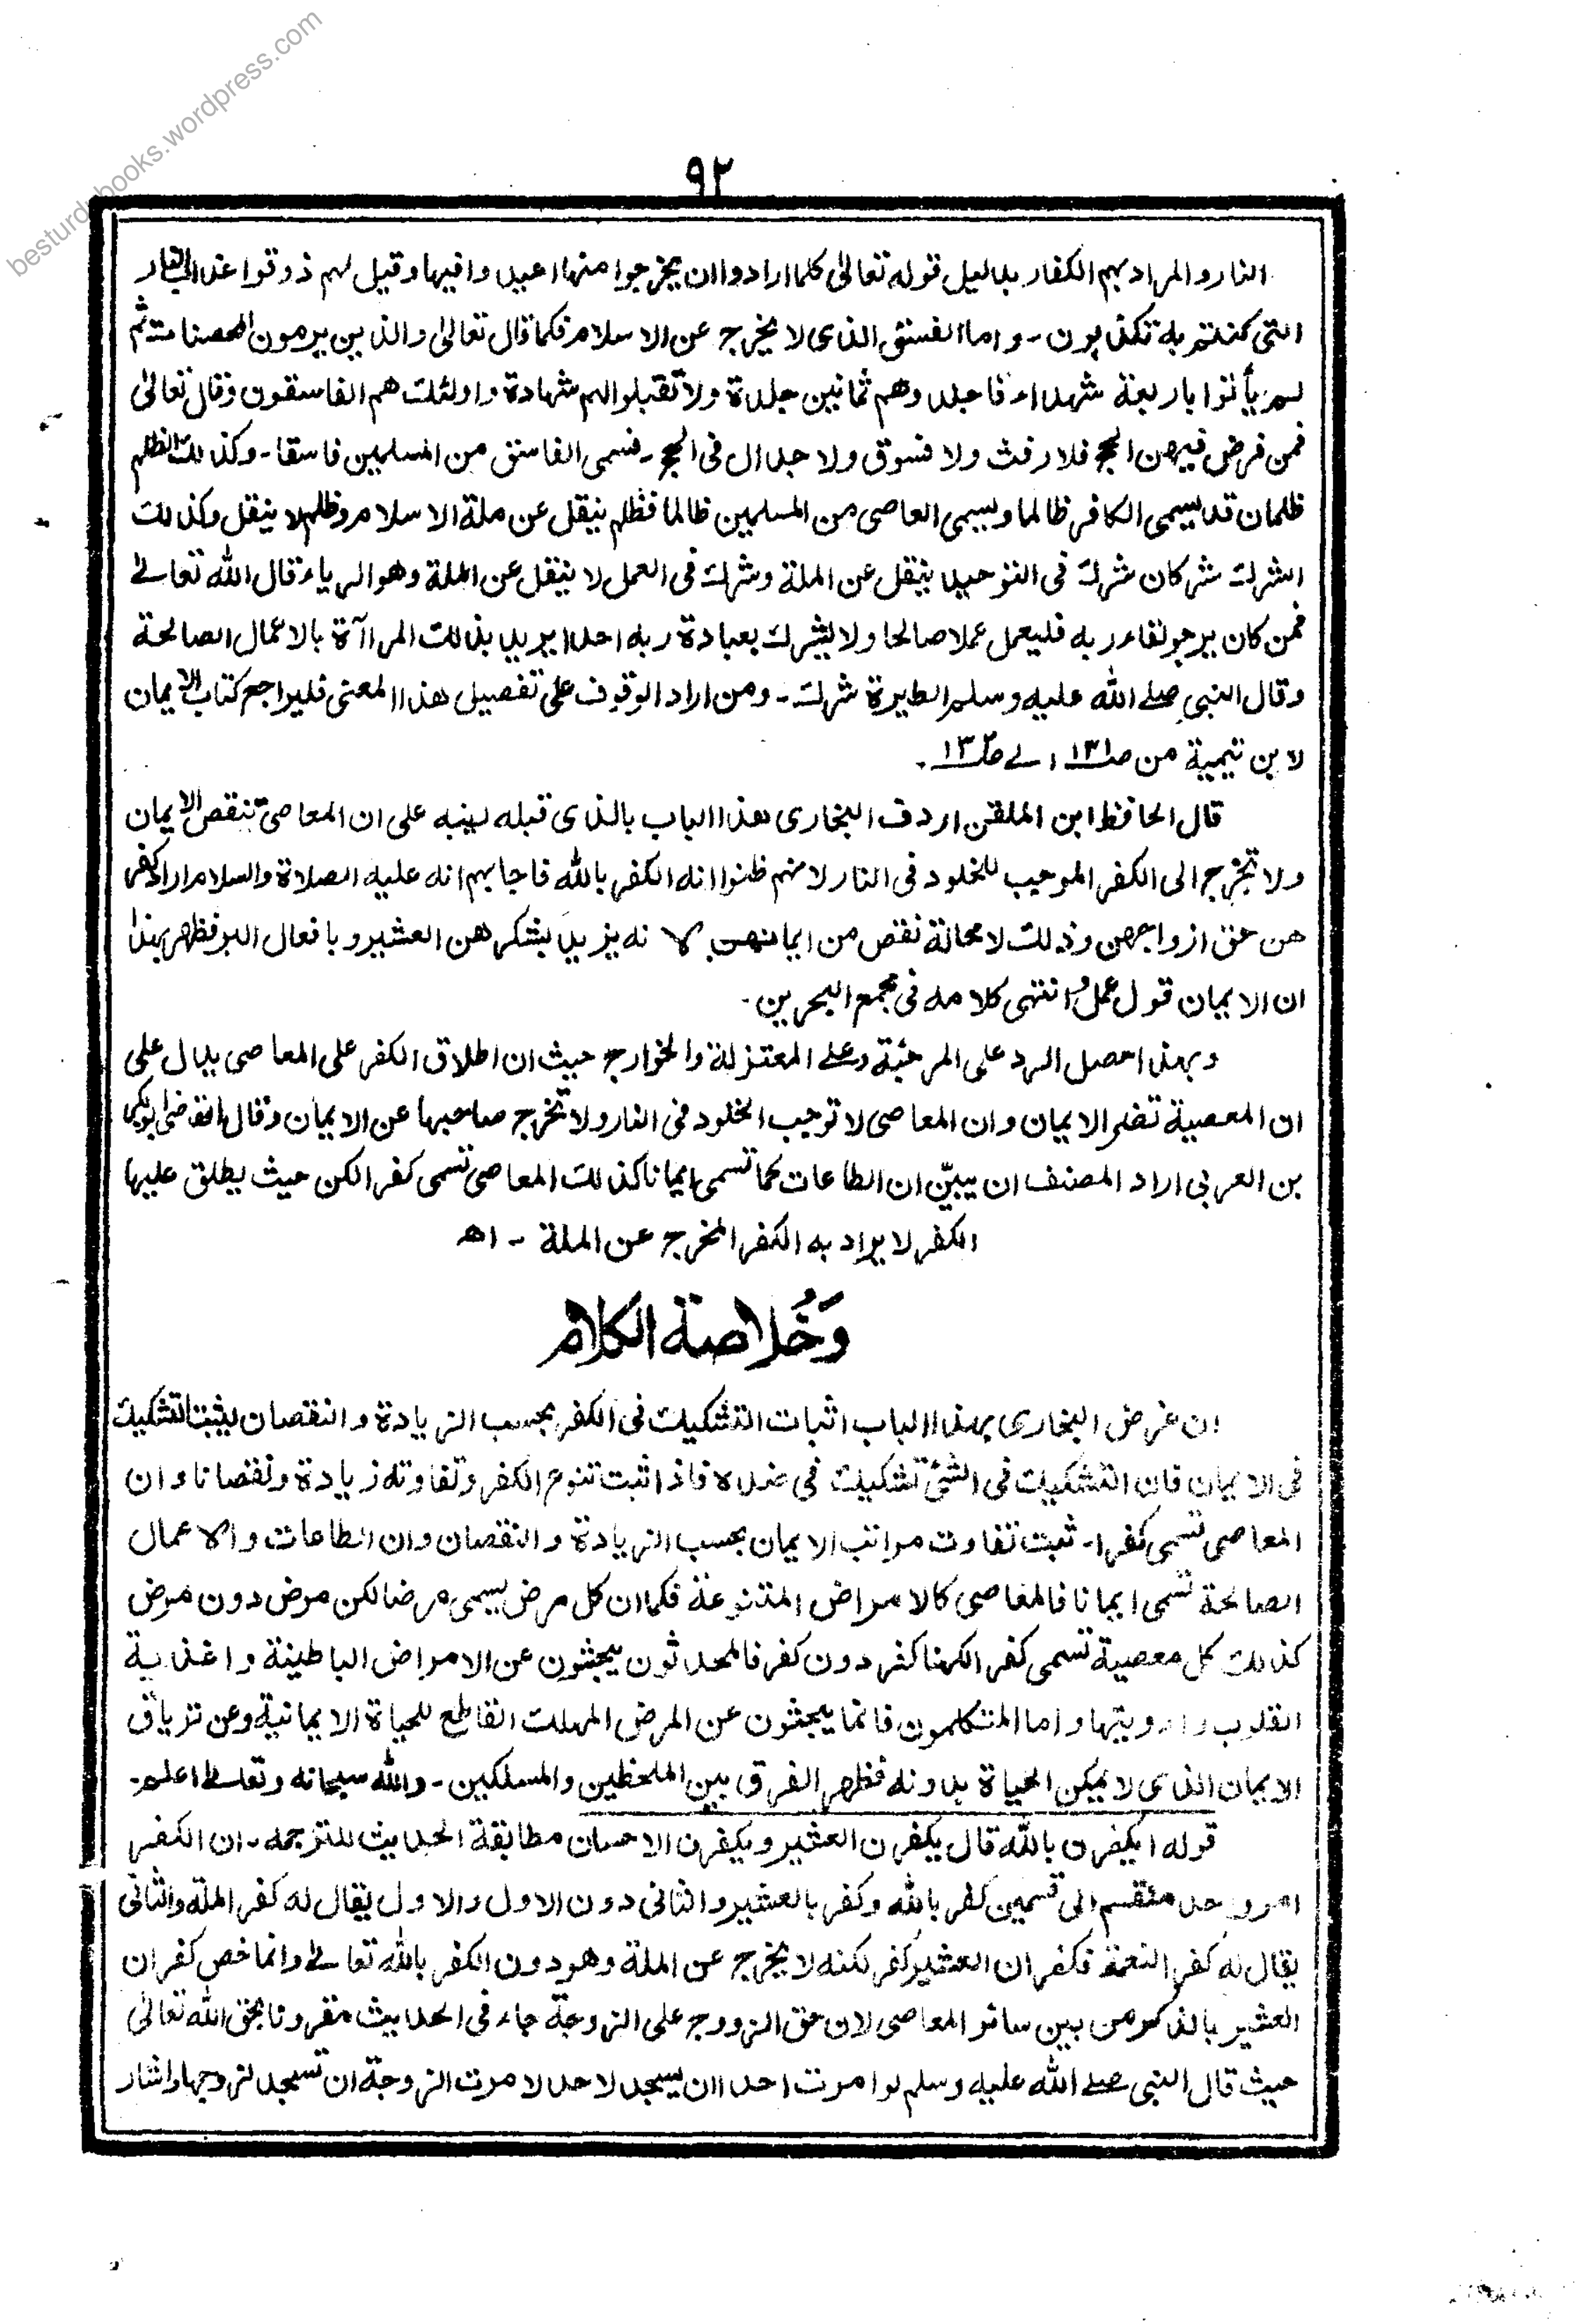 besturdubooks.wordpress.com
٩٢
النار والمراد بهم الكفار بدليل قوله تعالى كلما ارادوا ان يخرجوا منها اعيدوا فيها وقيل لهم ذوقوا عذاب النار
التى كنتم به تكذبون - واما الفسق الذى لا يخرج عن الاسلام فكما قال تعالى والذين يرمون المحصنات ثم
لم يأتوا باربعة شهداء فاجلدوهم ثمانين جلدة ولا تقبلوا لهم شهادة واولئك هم الفاسقون وقال تعالى
فمن فرض فيهن الحج فلا رفث ولا فسوق ولا جدال فى الحج - فسمى الفاسق من المسلمين فاسقا - وكذلك الظلم
ظلمان قد يسمى الكافر ظالما ويسمى العاصى من المسلمين ظالما فظلم ينقل عن ملة الاسلام وظلم لا ينقل وكذلك
الشرك شركان شرك فى التوحيد ينقل عن الملة وشرك فى العمل لا ينقل عن الملة وهو الرياء قال الله تعالى
فمن كان يرجو لقاء ربه فليعمل عملا صالحا ولا يشرك بعبادة ربه احدا يريد بذلك المراآة بالاعمال الصالحة
وقال النبى صلے الله عليه وسلم الطيرة شرك - ومن اراد الوقوف على تفصيل هذا المعنى فليراجع كتاب الايمان
لابن تيمية من صـ١٣١ الے صـ١٣٢ .
قال الحافظ ابن الملقن اردف البخارى هذا الباب بالذى قبله لينبه على ان المعاصى تنقص الايمان
ولا تخرج الى الكفر الموجب للخلود فى النار لانهم ظنوا انه الكفر بالله فاجابهم انه عليه الصلاة والسلام اراد كفر
هن حق ازواجهن وذلك لا محالة نقص من ايمانهن لا نه يزيد بشكرهن العشير وبافعال البر فظهر بهذا
ان الايمان قول وعمل انتهى كلامه فى مجمع البحرين -
وبهذا حصل الرد على المرجئة وعلے المعتزلة والخوارج حيث ان اطلاق الكفر على المعاصى يدل على
ان المعصية تضر الايمان وان المعاصى لا توجب الخلود فى النار ولا تخرج صاحبها عن الايمان وقال القاضى ابوبكر
بن العربى اراد المصنف ان يبيّن ان الطاعات كما تسمى ايمانا كذلك المعاصى تسمى كفرا لكن حيث يطلق عليها
الكفر لا يراد به الكفر المخرج عن الملة - اھ
وَخُلاصة الكلام
ان غرض البخارى بهذا الباب اثبات التشكيك فى الكفر بحسب الزيادة والنقصان ليثبت التشكيك
فى الايمان فان التشكيك فى الشئ تشكيك فى ضده فاذا ثبت تنوع الكفر وتفاوته زيادة ونقصانا وان
المعاصى تسمى كفرا - ثبت تفاوت مراتب الايمان بحسب الزيادة والنقصان وان الطاعات والاعمال
الصالحة تسمى ايمانا فالمعاصى كالامراض المتنوعة فكما ان كل مرض يسمى مرضا لكن مرض دون مرض
كذلك كل معصية تسمى كفرا لكنها كفر دون كفر فالمحدثون يبحثون عن الامراض الباطينة واغذية
القلب وادويتها واما المتكلمون فانما يبحثون عن المرض المهلك القاطع للحياة الايمانية وعن ترياق
الايمان الذى لا يمكن الحياة بدونه فظهر الفرق بين الملحظين والمسلكين - والله سبحانه وتعالے اعلم -
قوله ايكفرن بالله قال يكفرن العشير ويكفرن الاحسان مطابقة الحديث للترجمه - ان الكفر
امر واحد منقسم الى قسمين كفر بالله وكفر بالعشير والثانى دون الاول والاول يقال له كفر الملة والثانى
يقال له كفر النعمة فكفران العشير كفر لكنه لا يخرج عن الملة وهو دون الكفر بالله تعالے وانما خص كفران
العشير بالذكر من بين سائر المعاصى لان حق الزوج على الزوجة جاء فى الحديث مقرونا بحق الله تعالى
حيث قال النبى صلے الله عليه وسلم لو امرت احدا ان يسجد لاحد لامرت الزوجة ان تسجد لزوجها واشار